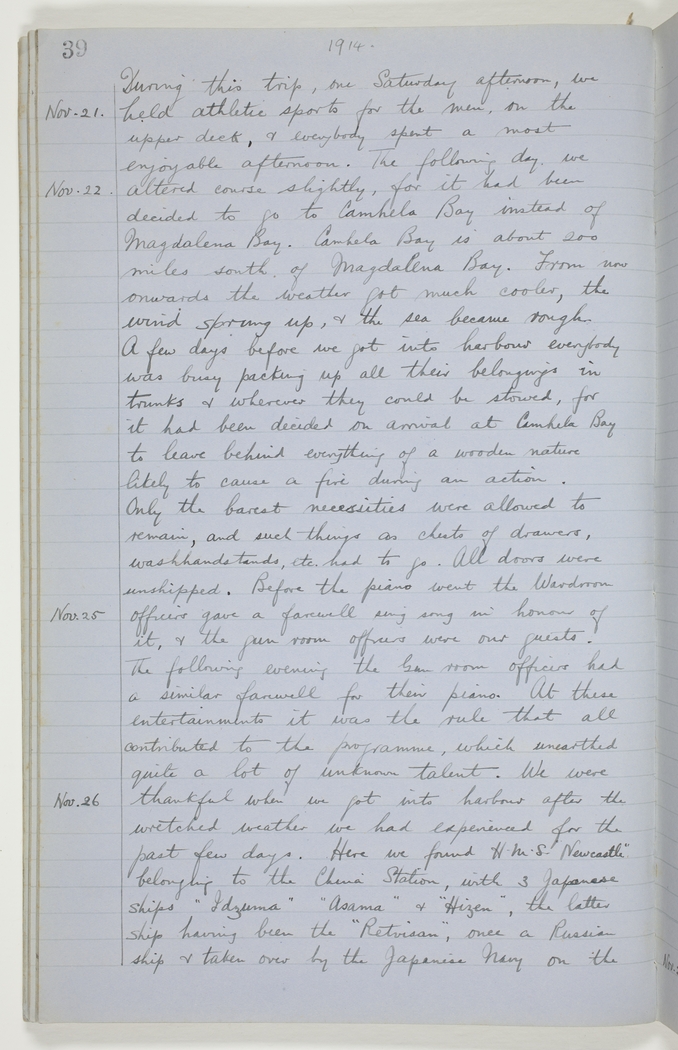 39
1914.
During this trip, one Saturday afternoon, we
Nov. 21. held athletic sports for the men, on the
upper deck, & everybody spent a most
enjoyable afternoon. The following day we
Nov. 22. altered course slightly, for it had been
decided to go to Camhela Bay instead of
Magdalena Bay. Camhela Bay is about 200
miles south of Magdalena Bay. From now
onwards the weather got much cooler, the
wind sprung up, & the sea became rough.
A few days before we got into harbour everybody
was busy packing up all their belongings in
trunks & wherever they could be stowed, for
it had been decided on arrival at Camhela Bay
to leave behind everything of a wooden nature
likely to cause a fire during an action.
Only the barest necessities were allowed to
remain, and such things as chests of drawers,
washhandstands, etc. had to go. All doors were
unshipped. Before the piano went the Wardroom
Nov. 25 officers gave a farewell sing song in honour of
it, & the gun room officers were our guests.
The following evening the Gun room officers had
a similar farewell for their piano. At these
entertainments it was the rule that all
contributed to the programme, which unearthed
quite a lot of unknown talent. We were
Nov. 26 thankful when we got into harbour after the
wretched weather we had experienced for the
past few days. Here we found H.M.S. "Newcastle"
belonging to the China Station, with 3 Japanese
ships "Idzuma" "Asama" & "Hizen", the latter
ship having been the "Retvisan", once a Russian
ship & taken over by the Japanese Navy on the
Nov.